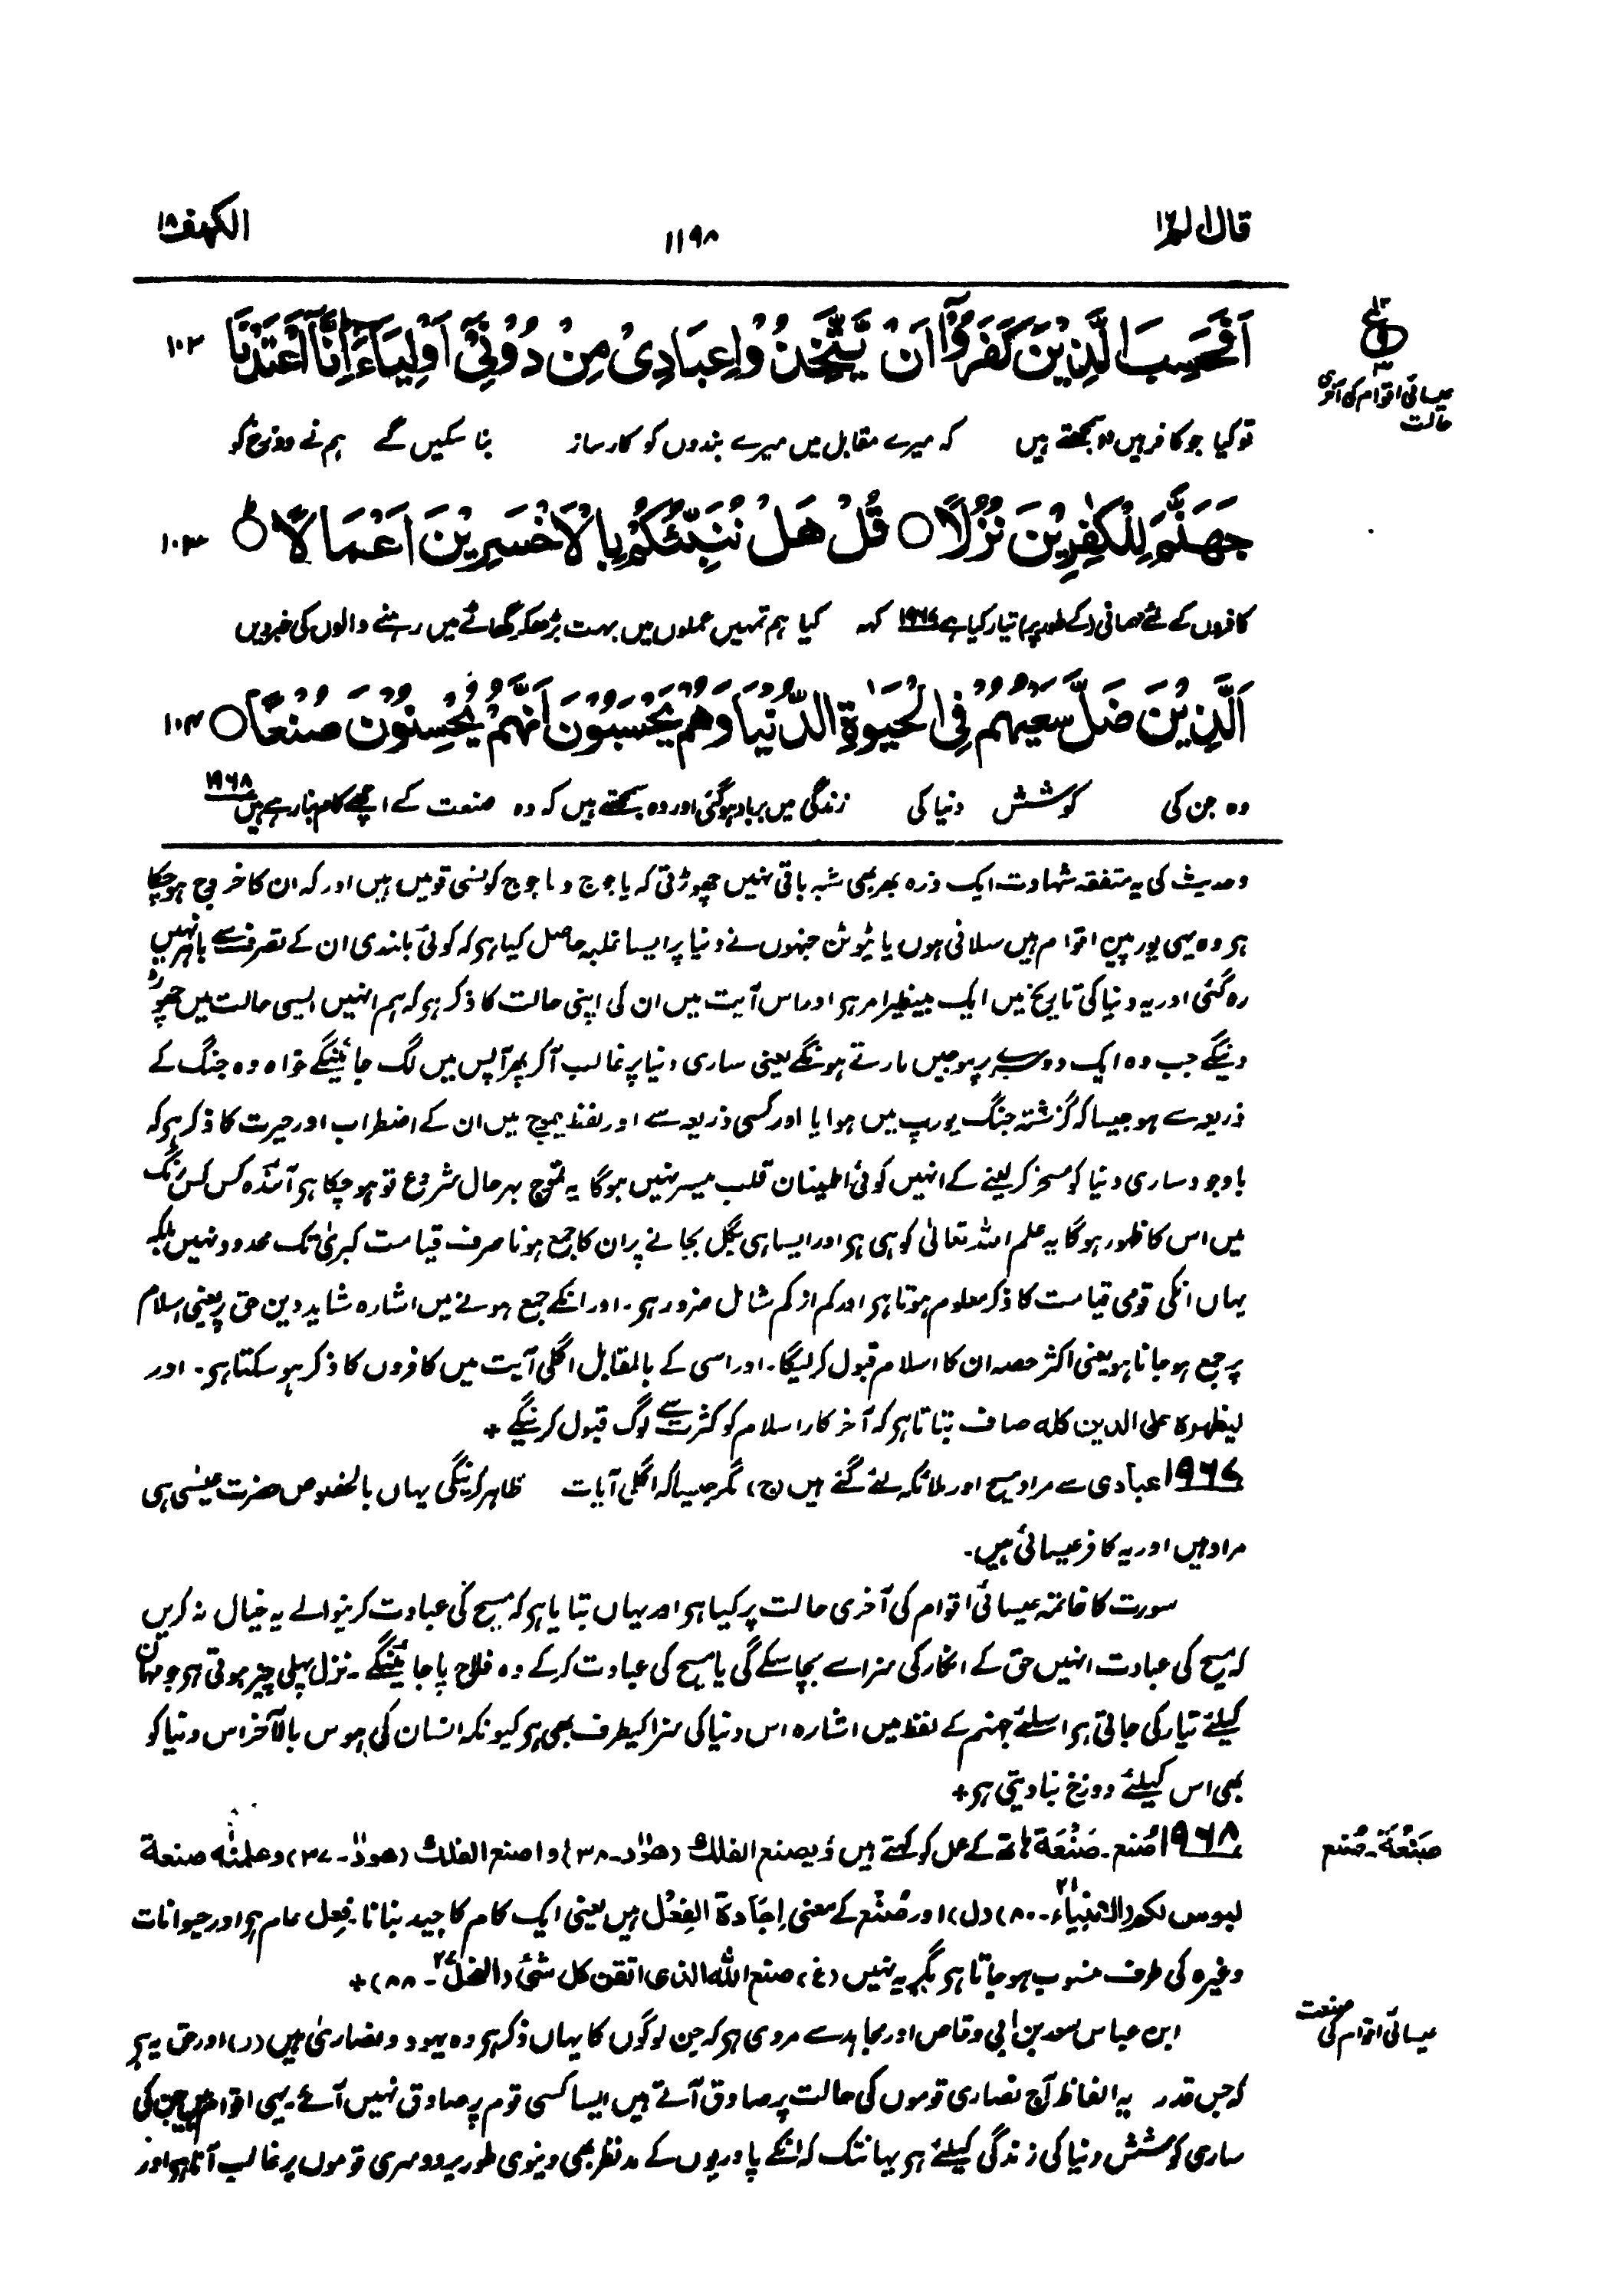 قال الم ۱۶
۱۱۹۸
الکہف ۱۸
عیسائی اقوام کی آخری
حالت
اَفَحَسِبَ الَّذِیْنَ کَفَرُوْۤا اَنْ یَّتَّخِذُوْا عِبَادِیْ مِنْ دُوْنِیْۤ اَوْلِیَآءَ ؕ اِنَّاۤ اَعْتَدْنَا ۱۰۲
تو کیا جو کافر ہیں وہ سمجھتے ہیں کہ میرے مقابل میں میرے بندوں کو کارساز بنا سکیں گے ہم نے دوزخ کو
جَهَنَّمَ لِلْکٰفِرِیْنَ نُزُلًا ○ قُلْ هَلْ نُنَبِّئُکُمْ بِالْاَخْسَرِیْنَ اَعْمَالًا ○ ۱۰۳
کافروں کے لئے مہمانی (کے طور پر) تیار کیا ہے ۱۹۶۷ کہہ کیا ہم تمہیں عملوں میں بہت بڑھکر گھاٹے میں رہنے والوں کی خبر دیں
اَلَّذِیْنَ ضَلَّ سَعْیُهُمْ فِی الْحَیٰوةِ الدُّنْیَا وَهُمْ یَحْسَبُوْنَ اَنَّهُمْ یُحْسِنُوْنَ صُنْعًا ○ ۱۰۴
وہ جن کی کوشش دنیا کی زندگی میں برباد ہوگئی اور وہ سمجھتے ہیں کہ وہ صنعت کے اچھے کام بنا رہے ہیں ۱۹۶۸
وحدیث کی یہ متفقہ شہادت ایک ذرہ بھر بھی شبہ باقی نہیں چھوڑتی کہ یاجوج و ماجوج کونسی قومیں ہیں اور کہ ان کا خروج ہوچکا
ہر وہ یہی یورپین اقوام ہیں سلانی ہوں یا ٹیوٹن جنہوں نے دنیا پر ایسا غلبہ حاصل کیا ہو کہ کوئی بلندی ان کے تصرف سے باہر نہیں
رہ گئی اور یہ دنیا کی تاریخ میں ایک بینظیر امر ہو اور اس آیت میں ان کی اپنی حالت کا ذکر ہو کہ ہم انہیں ایسی حالت میں چھوڑ
دینگے جب وہ ایک دوسرے پر موجیں مارتے ہونگے یعنی ساری دنیا پر غالب آکر پھر آپس میں لگ جائینگے خواہ وہ جنگ کے
ذریعہ سے ہو جیسا کہ گزشتہ جنگ یورپ میں ہوا یا اور کسی ذریعہ سے اور لفظ یموج میں ان کے اضطراب اور حیرت کا ذکر ہو کہ
باوجود ساری دنیا کو مسخر کرلینے کے انہیں کوئی اطمینان قلب میسر نہیں ہوگا یہ تموج بہر حال شروع تو ہوچکا ہر آئندہ کس کس رنگ
میں اس کا ظہور ہوگا یہ علم اللہ تعالیٰ کو ہی ہر اور ایسا ہی بگل بجانے پر ان کا جمع ہونا صرف قیامت کبریٰ تک محدود نہیں بلکہ
یہاں انکی قومی قیامت کا ذکر معلوم ہوتا ہر اور کم از کم شامل ضرور ہر۔ اور انکے جمع ہونے میں اشارہ شاید دین حق پر یعنی اسلام
پر جمع ہوجانا ہو یعنی اکثر حصہ ان کا اسلام قبول کرلیگا۔ اور اسی کے بالمقابل اگلی آیت میں کافروں کا ذکر ہوسکتا ہر۔ اور
لیظهرہ علی الدین کله صاف بتاتا ہر کہ آخر کار اسلام کو کثرت سے لوگ قبول کرینگے +
۱۹۶۷ عبادی سے مراد مسیح اور ملائکہ لئے گئے ہیں (ج)، مگر جیسا کہ اگلی آیات ظاہر کرینگی یہاں بالخصوص حضرت عیسٰی ہی
مراد ہیں اور یہ کافر عیسائی ہیں۔
سورت کا خاتمہ عیسائی اقوام کی آخری حالت پر کیا ہر اور یہاں بتایا ہر کہ مسیح کی عبادت کرنیوالے یہ خیال نہ کریں
کہ مسیح کی عبادت انہیں حق کے انکار کی سزا سے بچا سکے گی یا مسیح کی عبادت کرکے وہ فلاح پا جائینگے۔ نزل پہلی چیز ہوتی ہر جو مہمان
کیلئے تیار کی جاتی ہر اسلئے جہنم کے لفظ میں اشارہ اس دنیا کی سزا کیطرف بھی ہر کیونکہ انسان کی ہوس بالآخر اس دنیا کو
بھی اس کیلئے دوزخ بنا دیتی ہر +
صَنْعَة۔ صُنع
۱۹۶۸ صُنع۔ صَنْعَة ہاتھ کے عمل کو کہتے ہیں ویصنع الفلک (ھود۔ ۳۸) واصنع الفلک (ھود۔ ۳۷) وعلمنٰه صنعة
لبوس لکم (الانبیاء ۲۱۔ ۸۰) (ل) اور صُنع کے معنی اِجَادة الفِعْل ہیں یعنی ایک کام کا جید بنانا۔ فعل عام ہر اور حیوانات
وغیرہ کی طرف منسوب ہوجاتا ہر مگر یہ نہیں (غ)، صنع اللّٰه الذی اتقن کل شیٔ (النمل ۲۷۔ ۸۸) +
عیسائی اقوام کی صنعت
ابن عباس سعد بن ابی وقاص اور مجاہد سے مروی ہر کہ جن لوگوں کا یہاں ذکر ہر وہ یہود و نصاریٰ ہیں (ر) اور حق یہ ہر
کہ جس قدر یہ الفاظ آج نصاری قوموں کی حالت پر صادق آتے ہیں ایسا کسی قوم پر صادق نہیں آئے۔ یہی اقوام ہیں جن کی
ساری کوشش دنیا کی زندگی کیلئے ہر یہانتک کہ انکے پادریوں کے مدنظر بھی دنیوی طور پر دوسری قوموں پر غالب آنا ہر اور